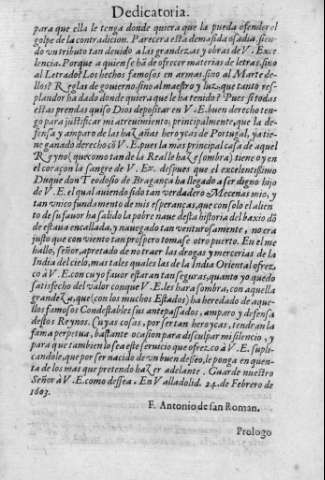 Dedicatoria.
para que ella le tenga donde quiera que la pueda ofender el
golpe de la contradicion. Parecera esta demasida osadia, sien-
do vn tributo tan deuido a las grandezas y obras de V. Exce
lencia. Porque a quien se hã de ofrecer materias de letras, sino
al Letrado? Los hechos famosos en armas, sino al Marte de-
llos? Reglas de gouierno, sino al maestro y luz, que tanto res-
plandor ha dado donde quiera que le ha tenido? Pues si todas
estas prendas quiso Dios depositar en V. E. buen derecho ten-
go para justificar mi atreuimiento; principalmente, que la de-
fensa y amparo de las hazañas heroycas de Portugal, ya tie-
ne ganado derecho cõ V. E. pues la mas principal casa de aquel
Reyno (que como tan de la Real le haze sombra) tiene oy en
el coraçon la sangre de V. Ex. despues que el excelentissimo
Duque don Teodosio de Bragança ha llegado a ser digno hijo
de V. E. el qual auiendo sido tan verdadero Mecenas mio, y
tan vnico fundamento de mis esperanças, que con solo el alien
to de su fauor ha salido la pobre naue desta historia del baxio dõ
de estaua encallada, y nauegado tan venturosamente, no era
justo que con viento tan prospero tomasse otro puerto. En el me
halle, señor, apretado de no traer las drogas y mercerias de la
India del cielo, mas tales quales las de la India Oriental ofrez-
co à V. E. con cuyo fauor estaran tan seguras, quanto yo quedo
satisfecho del valor con que V. E. les hara sombra, con aquella
grandeza, que (con los muchos Estados) ha heredado de aque-
llos famosos Condestables sus antepassados, amparo y defensa
destos Reynos. Cuyas cosas, por ser tan heroycas, tendran la
fama perpetua, bastante ocasion para disculpar mi silencio, y
para que tambien lo sea este seruicio que ofrezco à V. E. supli-
candole, que por ser nacido de vn buen desseo, le ponga en quen-
ta de los mas que pretendo hazer adelante. Guarde nuestro
Señor à V. E. como dessea. En Valladolid. 24. de Febrero de
1603.
F. Antonio de san Roman.
Prologo